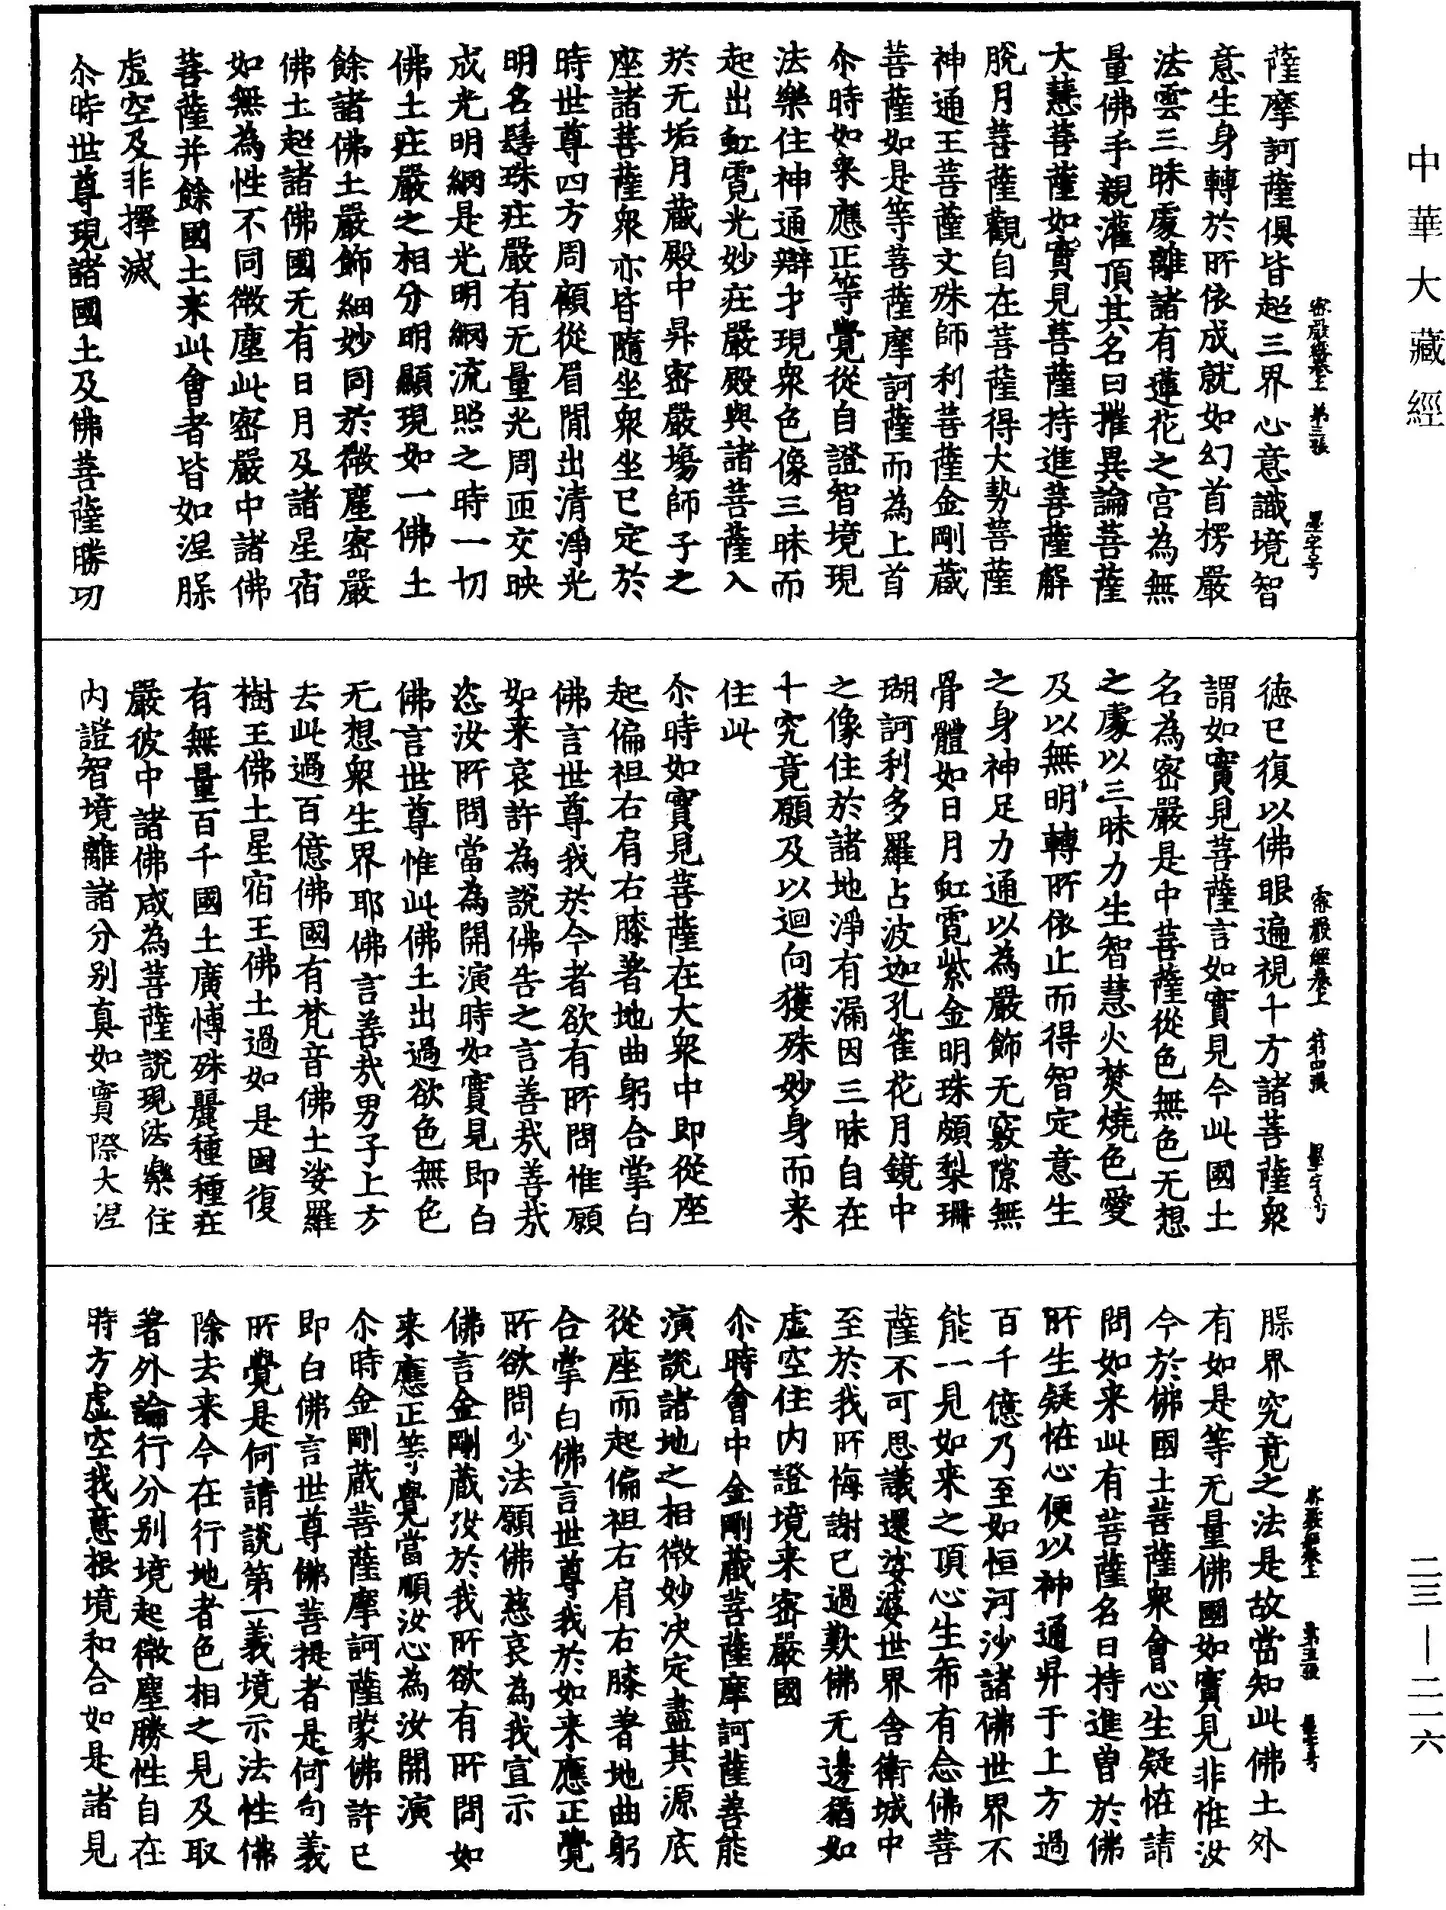 中華大藏經
薩摩訶薩俱皆超三界心意識境智
意生身轉於所依成就如幻首楞嚴
法雲三昧處離諸有蓮花之宫為無
量佛手親灌頂其名曰摧異論菩薩
大慧菩薩如實見菩薩持進菩薩解
脫月菩薩觀自在菩薩得大勢菩薩
神通王菩薩文殊師利菩薩金剛蔵
菩薩如是等菩薩摩訶薩而為上首
尒時如来應正等覺從自證智境現
法樂住神通辯才現衆色像三昧而
起出虹霓光妙莊嚴殿與諸菩薩入
於无垢月蔵殿中昇密嚴場師子之
座諸菩薩衆亦皆隨坐衆坐已定於
時世尊四方周顧從眉間出清淨光
明名髻珠莊嚴有无量光周匝交映
成光明網是光明網流照之時一切
佛土莊嚴之相分明顯現如一佛土
餘諸佛土嚴飾細妙同於微塵密嚴
佛土超諸佛國无有日月及諸星宿
如無為性不同微塵此密嚴中諸佛
菩薩并餘國土来此會者皆如涅槃
虛空及非擇滅
尒時世尊現諸國土及佛菩薩勝功
密嚴經卷上 第三張 墨字号
德已復以佛眼遍視十方諸菩薩衆
謂如實見菩薩言如實見今此國土
名為密嚴是中菩薩從色無色无想
之處以三昧力生智慧火焚燒色愛
及以無明轉所依止而得智定意生
之身神足力通以為嚴飾无竅隙無
骨體如日月虹霓紫金明珠頗梨珊
瑚訶利多羅占波迦孔雀花月鏡中
之像住於諸地淨有漏因三昧自在
十究竟願及以迴向獲殊妙身而来
住此
尒時如實見菩薩在大衆中即從座
起偏袒右肩右膝著地曲躬合掌白
佛言世尊我於今者欲有所問惟願
如来哀許為說佛告之言善哉善哉
恣汝所問當為開演時如實見即白
佛言世尊惟此佛土出過欲色無色
无想衆生界耶佛言善哉男子上方
去此過百億佛國有梵音佛土娑羅
樹王佛土星宿王佛土過如是國復
有無量百千國土廣博殊麗種種莊
嚴彼中諸佛咸為菩薩說現法樂住
内證智境離諸分别真如實際大涅
密嚴經卷上 第四張 墨字号
槃界究竟之法是故當知此佛土外
有如是等无量佛國如實見非惟汝
今於佛國土菩薩衆會心生疑恠請
問如来此有菩薩名曰持進曽於佛
所生疑恠心便以神通昇于上方過
百千億乃至如恒河沙諸佛世界不
能一見如来之頂心生希有念佛菩
薩不可思議還娑婆世界舍衛城中
至於我所悔謝已過歎佛无邊猶如
虛空住内證境来密嚴國
尒時會中金剛蔵菩薩摩訶薩善能
演說諸地之相微妙决定盡其源底
從座而起偏袒右肩右膝著地曲躬
合掌白佛言世尊我於如来應正等覺
所欲問少法願佛慈哀為我宣示
佛言金剛蔵汝於我所欲有所問如
来應正等覺當順汝心為汝開演
尒時金剛蔵菩薩摩訶薩蒙佛許已
即白佛言世尊佛菩提者是何句義
所覺是何請說第一義境示法性佛
除去来今在行地者色相之見及取
著外論行分别境起微塵勝性自在
時方虛空我意根境和合如是諸見
密嚴經卷上 第五張 墨字号
二三—二一六